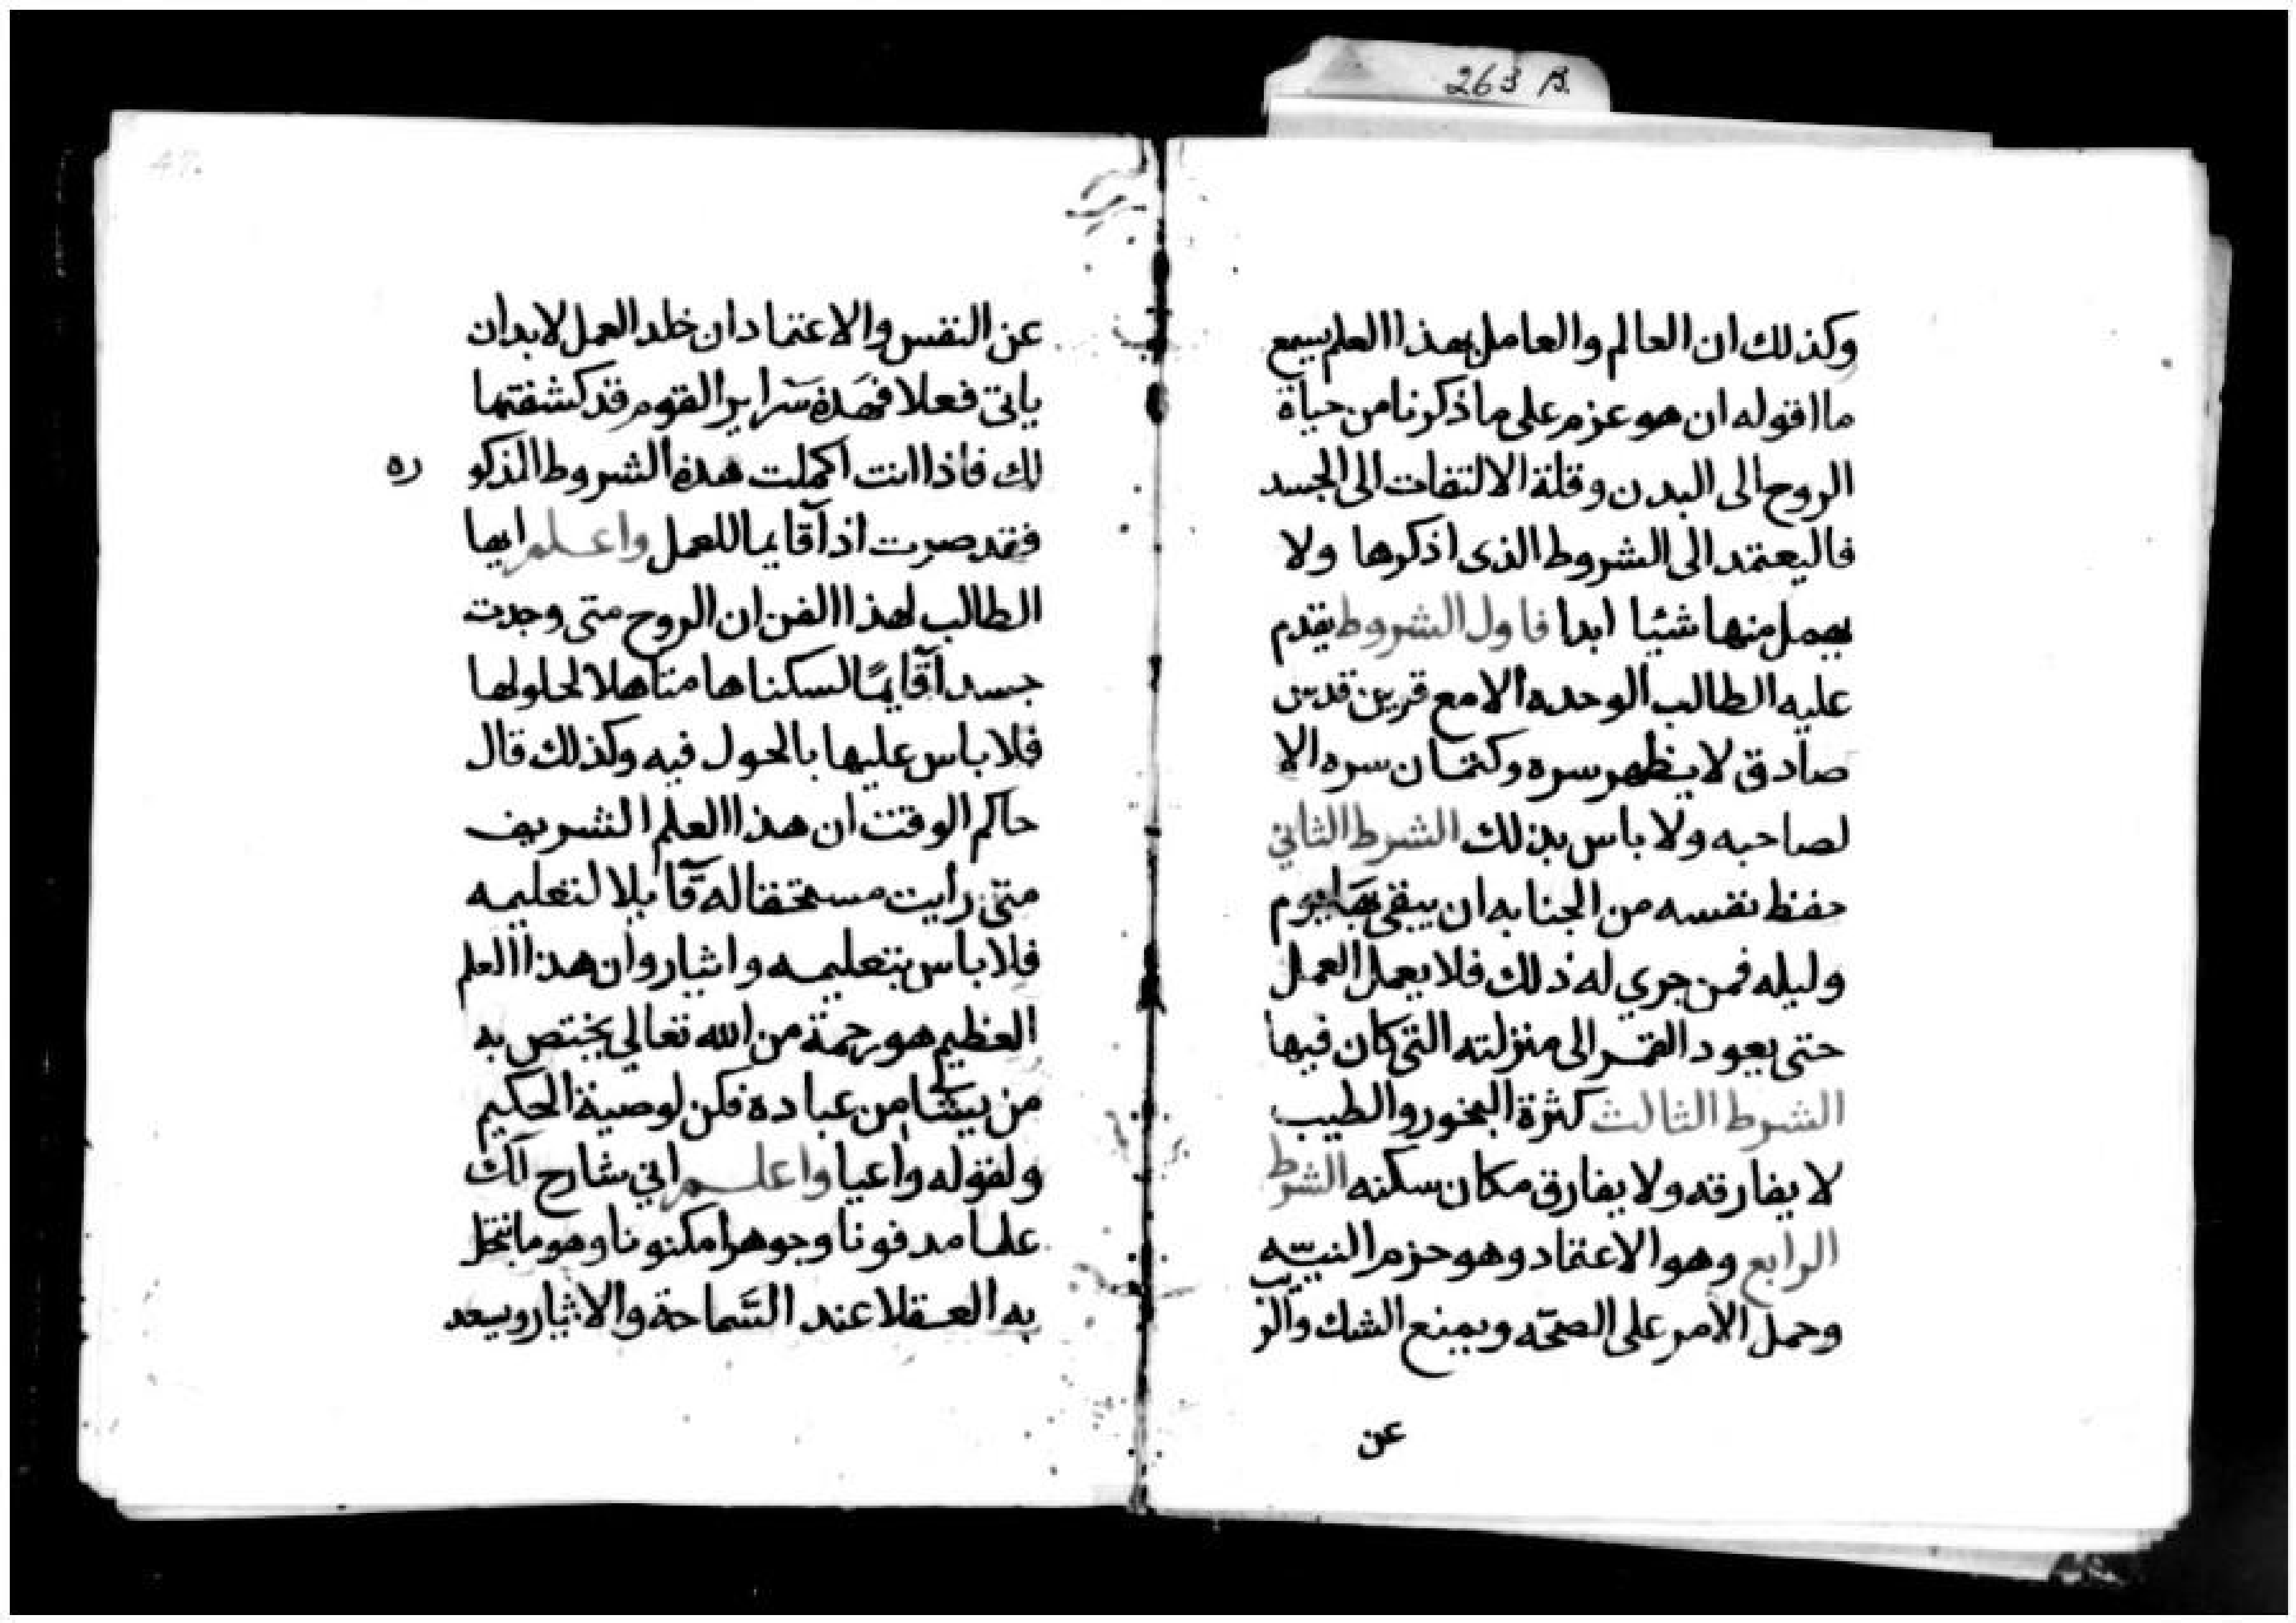 263 B.
وكذلك ان العالم والعامل بهذا العلم يسمع
ما اقوله ان هو عزم على ما ذكرنا من حياة
الروح الى البدن وقلة الالتفات الى الجسد
فاليعتمد الى الشروط الذى اذكرها ولا
يهمل منها شئيا ابدا فاول الشروط يقدم
عليه الطالب الوحده ألا مع قرين
صادق لا يظهر سره وكتمان سره الا
لصاحبه ولا باس بذلك الشرط الثاني
حفظ نفسه من الجنابه ان يبقى بها يوم
وليله فمن جري له ذلك فلا يعمل العمل
حتى يعود القمر الى منزلته التى كان فيها
الشرط الثالث كثرة البخور والطيب
لا يفارقه ولا يفارق مكان سكنه الشرط
الرابع وهو الاعتماد وهو حزم النيّه
وحمل الأمر على الصحّه ويمنع الشك والريب
عن
47.
عن النفس والاعتماد ان خلد العمل لابد ان
ياتى فعلا فهَذه سَراير القوم قد كشفتها
لك فاذا انت اكملت هذه الشروط المذكو ره
فقد صرت اذآ قايما للعمل واعلم ايها
الطالب لهذا الفن ان الروح متى وجدت
جسدآ قايمًا لسكناها متاهلا لحلولها
فلا باس عليها بالحول فيه وكذلك قال
حاكم الوقت ان هذا العلم الشريف
متى رأيت مستحقا له قآبلا لتعليمه
فلا باس بتعليمه وايثار وان هذا العلم
العظيم هو رحمة من الله تعالي يختص به
من يشَا من عباده فكن لوصية الحكيم
ولقوله واعيا واعلم اني شارح لك
علما مدفونا وجوهرا مكنونا وهو ما
به العقلا عند السَّماحة والايثار ويسعد